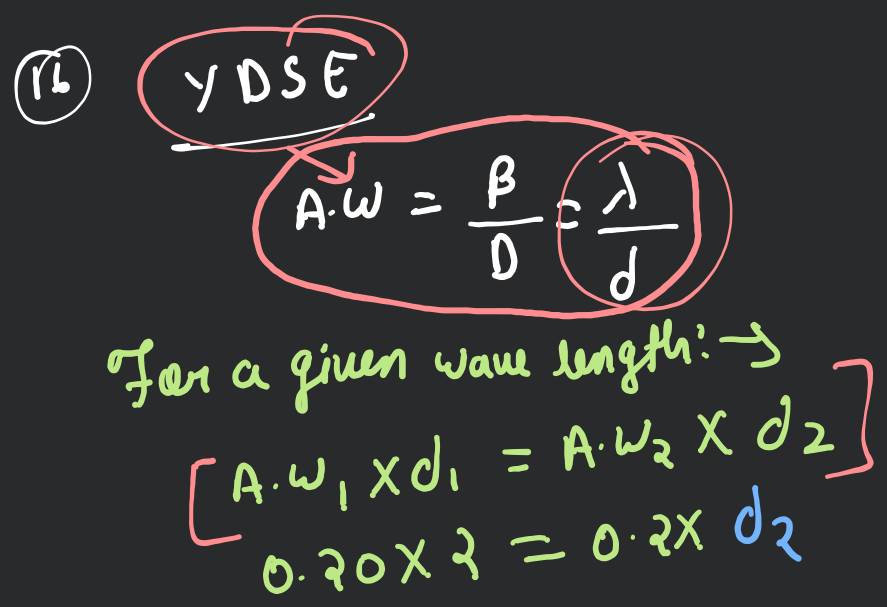 16 YDSE
A.W = β/D = λ/d
For a given wave length:→
[A.W₁ X d₁ = A.W₂ X d₂]
0.20 X 2 = 0.2 X d₂